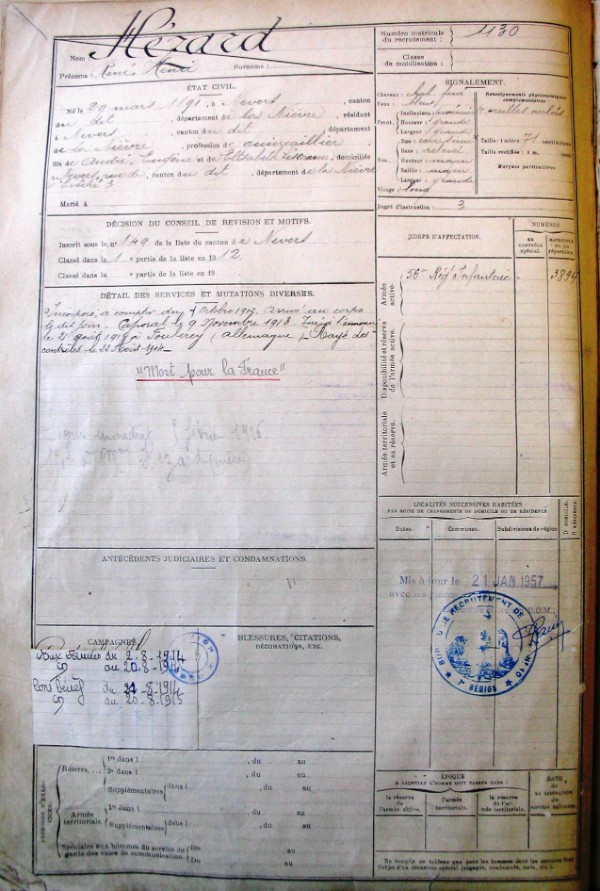 Hézard
Nom
Prénoms René, Henri Surnoms :
Numéro matricule du recrutement : 1130
Classe de mobilisation :
ÉTAT CIVIL.
Né le 29 mars 1891, à Nevers, canton
du dit, département de la Nièvre, résidant
à Nevers, canton du dit, département
de la Nièvre, profession de quincaillier
fils de André, Eugène et de, domiciliés
à Nevers, rue, canton du dit, département de la Nièvre
Marié à
SIGNALEMENT.
Cheveux :
Yeux : bleus
Renseignements physionomiques complémentaires :
Front. Inclinaison
Hauteur grande
Largeur grande
Nez. Dos
Base relevé
Hauteur moyen
Saillie moyen
Largeur
Visage long
Taille : 1 mètre 71 centimètres
Taille rectifiée : 1 m.
Marques particulières
Degré d'instruction : 3
DÉCISION DU CONSEIL DE REVISION ET MOTIFS.
Inscrit sous le n° 149 de la liste du canton de Nevers
Classé dans la 1 e partie de la liste en 1912
Classé dans la e partie de la liste en 19
CORPS D'AFFECTATION.
NUMÉROS
au contrôle spécial.
MATRICULE ou au répertoire.
56e Rég Infanterie 3894
Armée active.
Disponibilité et réserve de l'armée active.
Armée territoriale et sa réserve.
DÉTAIL DES SERVICES ET MUTATIONS DIVERSES.
Incorporé à compter du Octobre 1912. Arrivé au corps
le dit jour. Caporal le 9 Novembre 1913. Tué à l'ennemi
le 21 août 1914 à (Allemagne). Rayé des
contrôles le 22 Août 1914
"Mort pour la France"
février 1916
LOCALITÉS SUCCESSIVES HABITÉES
PAR SUITE DE CHANGEMENTS DE DOMICILE OU DE RÉSIDENCE.
Dates. Communes. Subdivisions de région.
D. domicile.
R. résidence.
ANTÉCÉDENTS JUDICIAIRES ET CONDAMNATIONS.
Mis à jour le 21 JAN 1957
avec les pièces
BUREAU DE RECRUTEMENT DE DIJON
7e RÉGION
CAMPAGNES.
BLESSURES, CITATIONS,
DÉCORATIONS, ETC.
du 2-8-1914
au 20-8-1914
du 21-8-1914
au 20-8-1915
Réserve
1re dans l , du au
2e dans l , du au
Supplémentaires dans l , du au
Armée territoriale.
1re dans l , du au
Supplémentaires dans l , du au
Spéciales aux hommes du service de garde des voies de communication. Du au
Du au
ÉPOQUE
À LAQUELLE L'HOMME DOIT PASSER DANS :
la réserve de l'armée active.
l'armée territoriale.
la réserve de l'armée territoriale.
DATE
de la libération du service militaire.